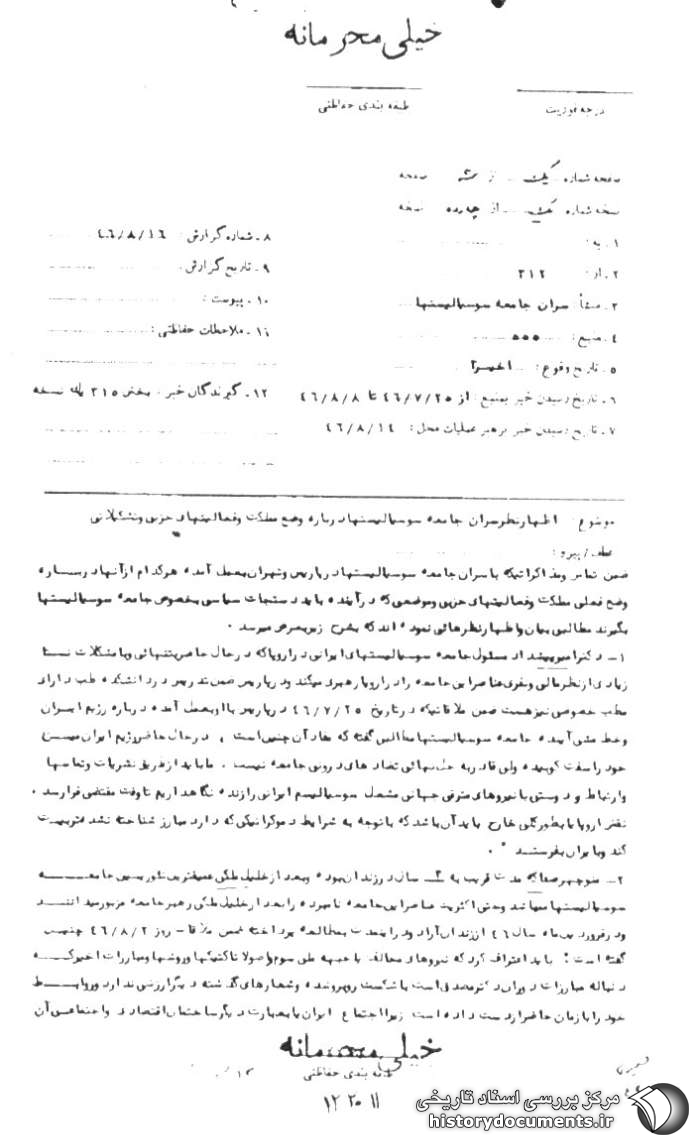 خیلی محرمانه
درجه فوریت
طبقه بندی حفاظتی
صفحه شماره یک از صفحه
نسخه شماره یک از چهارده نسخه
۱ـ به :
۲ـ از : ۳۱۲
۳ـ منشأ : سران جامعه سوسیالیستها
۴ـ منبع : ۵۵۵
۵ـ تاریخ وقوع : اخیراً
۶ـ تاریخ رسیدن خبر بمنبع : از ۴۶/۷/۲۵ تا ۴۶/۸/۸
۷ـ تاریخ رسیدن خبر برهبر عملیات محل : ۴۶/۸/۱۴
۸ـ شماره گزارش : ۴۶/۸/۱۶
۹ـ تاریخ گزارش :
۱۰ـ پیوست :
۱۱ـ ملاحظات حفاظتی :
۱۲ـ گیرندگان خبر : بخش ۳۱۵ یک نسخه
موضوع : اظهارنظر سران جامعه سوسیالیستها درباره وضع مملکت وفعالیتهای حزبی وتشکیلاتی
عطف / پیرو :
ضمن تماس ومذاکراتیکه با سران جامعه سوسیالیستها در پاریس وتهران بعمل آمده هرکدام از آنها درباره
وضع فعلی مملکت وفعالیتهای حزبی وموضعی که در آینده باید دستجات سیاسی بخصوص جامعه سوسیالیستها
بگیرند مطالبی بیان واظهارنظرهائی نموده اند که بشرح زیر بعرض میرسد .
۱ـ دکتر امیرپیشداد مسئول جامعه سوسیالیستهای ایرانی در اروپا که در حال حاضر بتنهائی وبا مشکلات نسبتا
زیادی از نظر مالی ونفری عناصر این جامعه را در اروپا رهبری میکند ودر پاریس ضمن تدریس در دانشکده طب دارای
مطب خصوصی نیز هست ضمن ملاقاتیکه در تاریخ ۴۶/۷/۲۵ در پاریس با او بعمل آمده درباره رژیم ایران
وخط مشی آینده جامعه سوسیالیستها مطالبی گفته که مفاد آن چنین است ، در حال حاضر رژیم ایران میخ
خود را سفت کوبیده ولی قادر به حل نهائی تضادهای درونی جامعه نیست . ما باید از طریق نشریات وتماسها
وارتباط ودوستی با نیروهای مترقی جهانی مشعل سوسیالیسم ایرانی را زنده نگاهداریم تا وقت مقتضی فرا رسد .
نقش اروپا یا بطور کلی خارج باید آن باشد که با توجه به شرایط دموکراتیکی که دارد مبارز شناخته نشده تربیت
کند وبایران بفرستد .
۲ـ منوچهر صفا که مدت قریب به سال در زندان بوده وبعد از خلیل ملکی عمیقترین تئوریسین جامعه
سوسیالیستها میباشد وحتی اکثریت عناصر این جامعه نامبرده را بعد از خلیل ملکی رهبر جامعه مزبور میدانند
ودر فروردین ماه سال ۴۶ از زندان آزاد ودر اینمدت بمطالعه پرداخته ضمن ملاقات روز ۴۶/۸/۲ چنین
گفته است : باید اعتراف کرد که نیروهای مخالف با جبهه ملی سوم واصولا تاکتیکها وروشها ومبارزات اخیر که
دنباله مبارزات دوران دکتر مصدق است با شکست روبرو شده وشعارهای گذشته دیگر ارزشی ندارد وروابط
خود را با زمان حاضر از دست داده است زیرا اجتماع ایران یا بعبارت دیگر ساختمان اقتصادی واجتماعی آن
خیلی محرمانه
طبقه بندی حفاظتی
مرکز بررسی اسناد تاریخی
historydocuments.ir